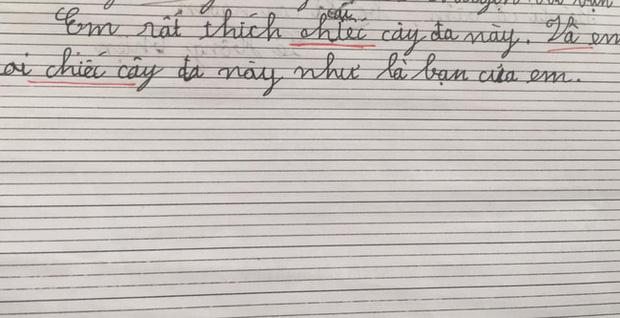 cây
Em rất thích chiếc cây đa này. Và em
ai chiếc cây đa này như là bạn của em.